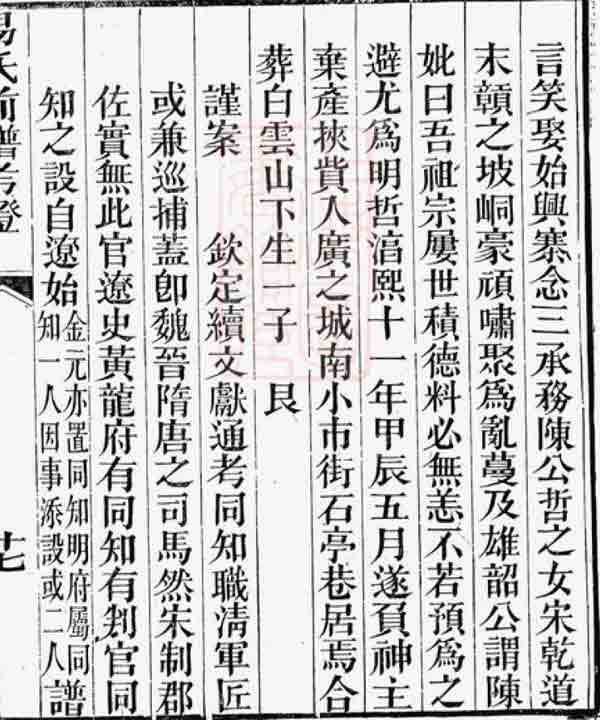 言笑娶始興寨念三承務陳公哲之女宋乾道
末贛之坡峒豪頑嘯聚爲亂蔓及雄韶公謂陳
妣曰吾祖宗屢世積德料必無恙不若預爲之
避尤爲明哲淯熙十一年甲辰五月遂負神主
棄產挾貲入廣之城南小市街石亭巷居焉合
葬白雲山下生一子 艮
謹案 欽定續文獻通考同知職淸軍匠
或兼巡捕蓋卽魏晉隋唐之司馬然宋制郡
佐實無此官遼史黃龍府有同知有判官同
知之設自遼始金元亦置同知明府屬同知一人因事添設或二人譜
楊氏前譜考證
廿七